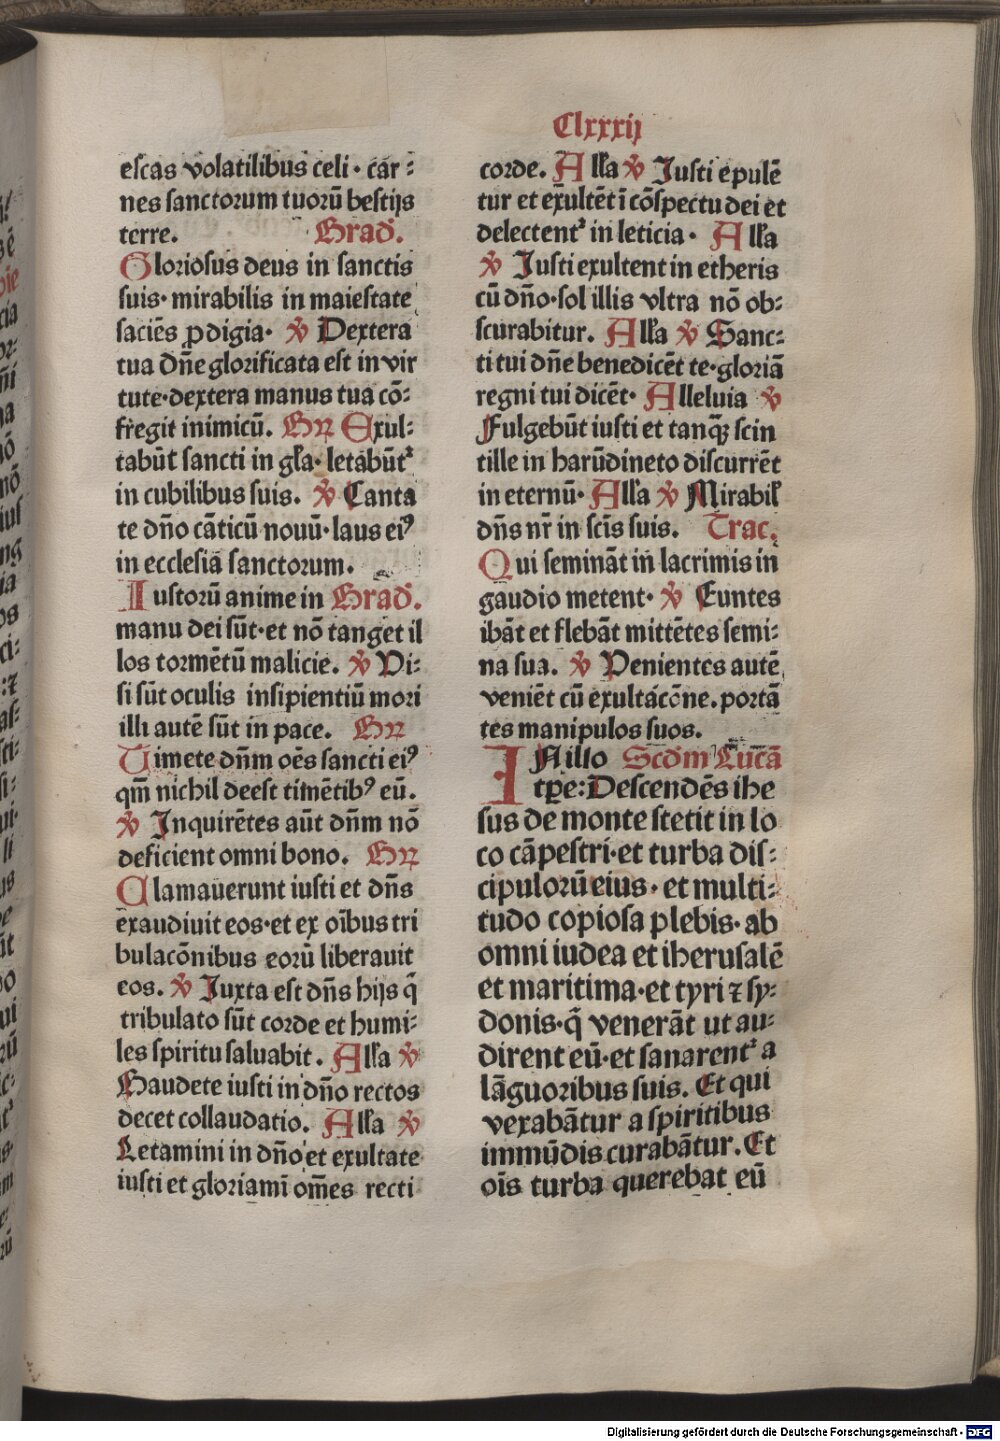 Clxxxij
escas volatilibus celi · car⸗
nes sanctorum tuorū bestijs
terre. Grad̄.
Gloriosus deus in sanctis
suis· mirabilis in maiestate
faciēs ꝓdigia· ℣ Dextera
tua dn̄e glorificata est in vir
tute·dextera manus tua cō⸗
fregit inimicū. Gꝛ Exul⸗
tabūt sancti in gl̄a· letabūtᷣ
in cubilibus suis. ℣ Canta
te dn̄o cāticū nouū· laus eiꝰ
in ecclesia sanctorum.
Iustorū anime in Grad̄.
manu dei sūt·et nō tanget il
los tormētū malicie. ℣ Vi⸗
si sūt oculis insipientiū mori
illi autē sūt in pace. Gꝛ
Timete dn̄m oēs sancti eiꝰ
qm̄ nichil deest timētibꝰ eū.
℣ Inquirētes aūt dn̄m nō
deficient omni bono. Gꝛ
Clamauerunt iusti et dn̄s
exaudiuit eos·et ex oībus tri
bulacōnibus eorū liberauit
eos. ℣ Iuxta est dn̄s hijs q̄
tribulato sūt corde et humi⸗
les spiritu saluabit. All̄a ℣
Gaudete iusti in dn̄o rectos
decet collaudatio. All̄a ℣
Letamini in dn̄o et exultate
iusti et gloriamī om̄es recti
corde. All̄a ℣ Iusti epulē
tur et exultēt ī cōspectu dei et
delectentᷣ in leticia· All̄a
℣ Iusti exultent in etheris
cū dn̄o·sol illis vltra nō ob⸗
scurabitur. All̄a ℣ Sanc⸗
ti tui dn̄e benedicēt te·gloriā
regni tui dicēt· Alleluia ℣
Fulgebūt iusti et tanqꝫ scin
tille in harūdineto discurrēt
in eternū· All̄a ℣ Mirabil̄
dn̄s nr̄ in scīs suis. Trac.
Qui semināt in lacrimis in
gaudio metent· ℣ Euntes
ibāt et flebāt mittētes semi⸗
na sua. ℣ Venientes autē
veniēt cū exultacōne. portā
tes manipulos suos.
IN illo Scd̄m Lucā
tꝑe: Descendēs ihe
sus de monte stetit in lo
co cāpestri·et turba dis⸗
cipulorū eius · et multi⸗
tudo copiosa plebis· ab
omni iudea et iherusalē
et maritima·et tyri ⁊ sy⸗
donis·q̄ venerāt ut au⸗
dirent eū·et sanarentᷣ a
lāguoribus suis. Et qui
vexabātur a spiritibus
immūdis curabātur. Et
oīs turba querebat eū
Digitalisierung gefördert durch die Deutsche Forschungsgemeinschaft - DFG